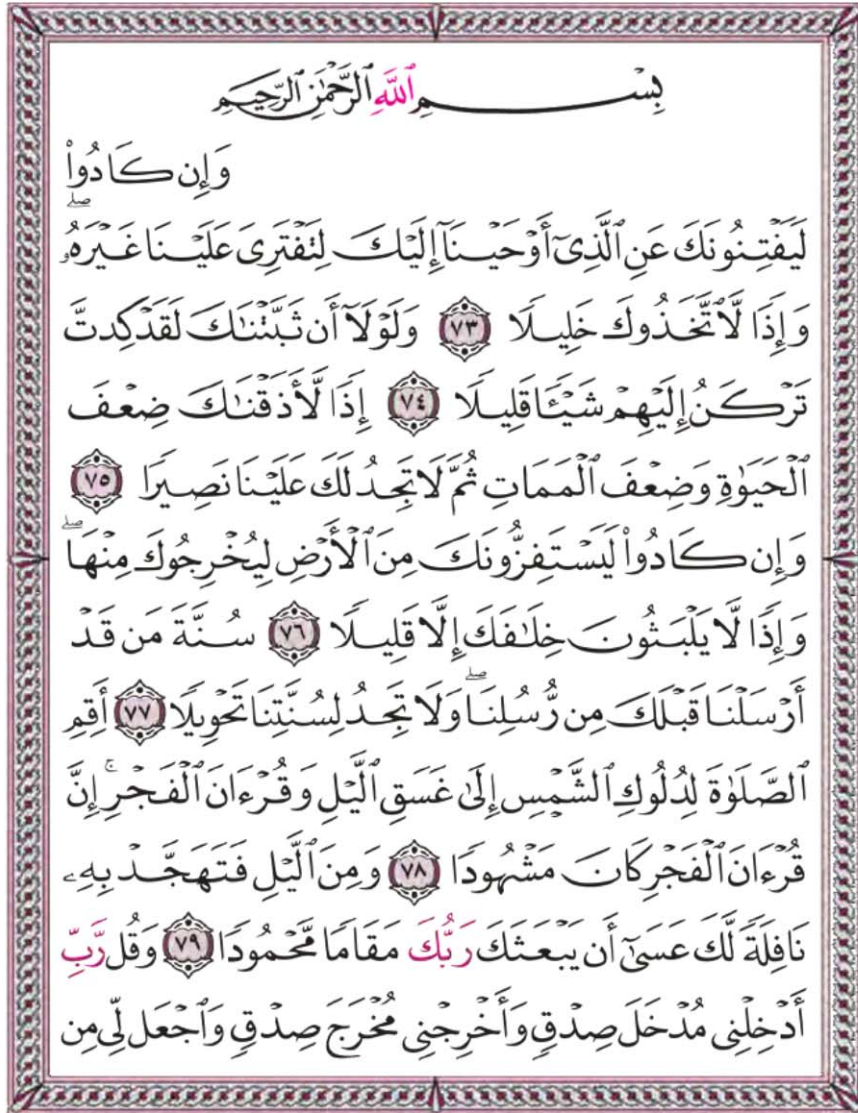 بِسْمِ ٱللَّهِ ٱلرَّحْمَٰنِ ٱلرَّحِيمِ
وَإِن كَادُوا۟
لَيَفْتِنُونَكَ عَنِ ٱلَّذِىٓ أَوْحَيْنَآ إِلَيْكَ لِتَفْتَرِىَ عَلَيْنَا غَيْرَهُۥ ۖ
وَإِذًا لَّٱتَّخَذُوكَ خَلِيلًا ٧٣ وَلَوْلَآ أَن ثَبَّتْنَٰكَ لَقَدْ كِدتَّ
تَرْكَنُ إِلَيْهِمْ شَيْـًٔا قَلِيلًا ٧٤ إِذًا لَّأَذَقْنَٰكَ ضِعْفَ
ٱلْحَيَوٰةِ وَضِعْفَ ٱلْمَمَاتِ ثُمَّ لَا تَجِدُ لَكَ عَلَيْنَا نَصِيرًا ٧٥
وَإِن كَادُوا۟ لَيَسْتَفِزُّونَكَ مِنَ ٱلْأَرْضِ لِيُخْرِجُوكَ مِنْهَا ۖ
وَإِذًا لَّا يَلْبَثُونَ خِلَٰفَكَ إِلَّا قَلِيلًا ٧٦ سُنَّةَ مَن قَدْ
أَرْسَلْنَا قَبْلَكَ مِن رُّسُلِنَا ۖ وَلَا تَجِدُ لِسُنَّتِنَا تَحْوِيلًا ٧٧ أَقِمِ
ٱلصَّلَوٰةَ لِدُلُوكِ ٱلشَّمْسِ إِلَىٰ غَسَقِ ٱلَّيْلِ وَقُرْءَانَ ٱلْفَجْرِ ۚ إِنَّ
قُرْءَانَ ٱلْفَجْرِ كَانَ مَشْهُودًا ٧٨ وَمِنَ ٱلَّيْلِ فَتَهَجَّدْ بِهِۦ
نَافِلَةً لَّكَ عَسَىٰٓ أَن يَبْعَثَكَ رَبُّكَ مَقَامًا مَّحْمُودًا ٧٩ وَقُل رَّبِّ
أَدْخِلْنِى مُدْخَلَ صِدْقٍ وَأَخْرِجْنِى مُخْرَجَ صِدْقٍ وَٱجْعَل لِّى مِن